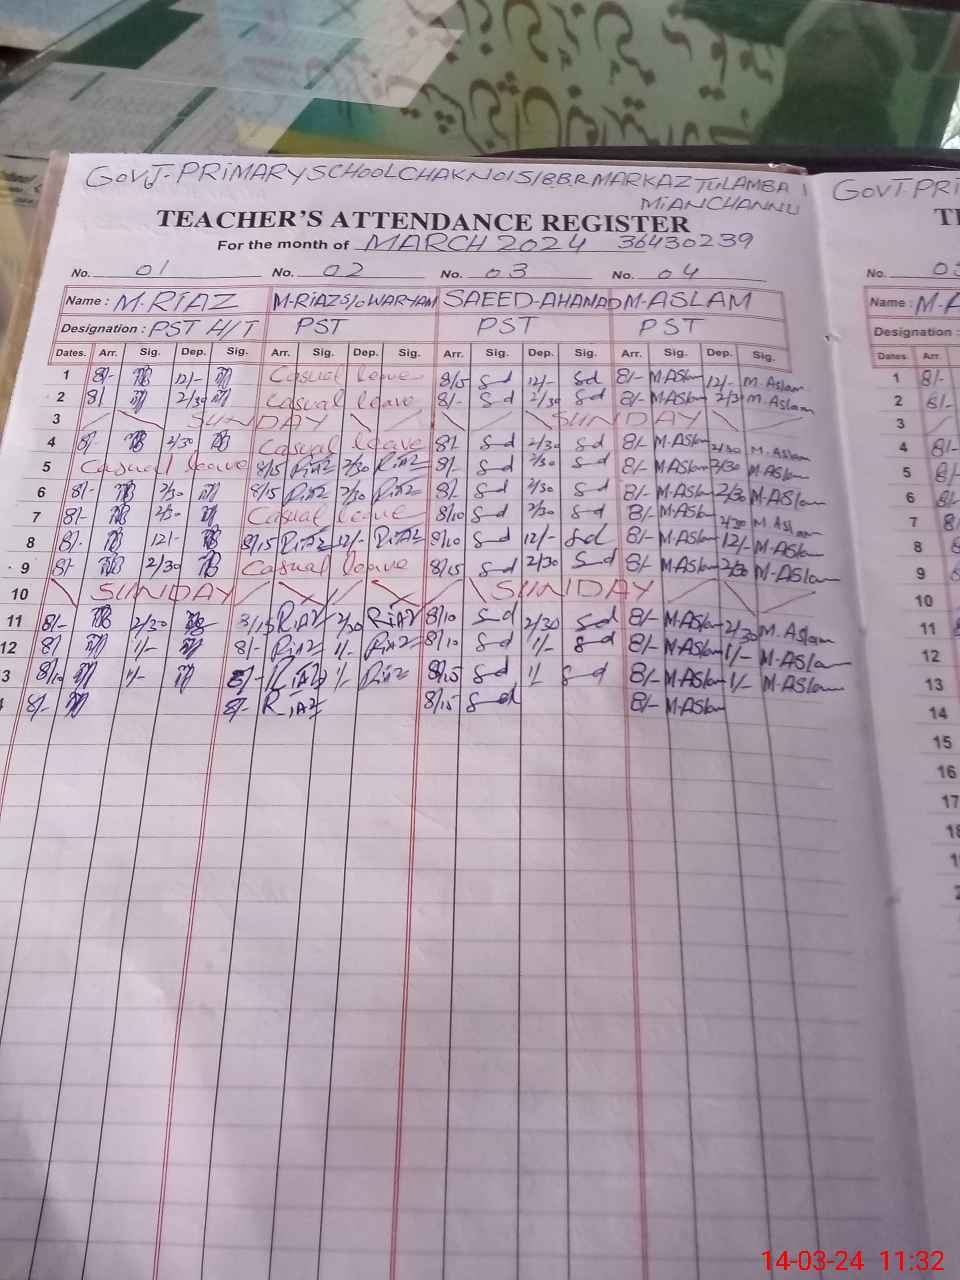 GOVT-PRIMARY SCHOOL CHAK NO 15/8.B.R MARKAZ TULAMBA
MIANCHANNU
TEACHER'S ATTENDANCE REGISTER
For the month of MARCH 2024 36430239
No. 01 No. 02 No. 03 No. 04
Name : M.RIAZ M-RIAZ S/O WARYAM SAEED-AHAMAD M-ASLAM
Designation : PST H/T PST PST PST
Dates. Arr. Sig. Dep. Sig. Arr. Sig. Dep. Sig. Arr. Sig. Dep. Sig. Arr. Sig. Dep. Sig.
1 8/- 12/- Casual leave 8/15 Sd 12/- Sd 8/- M.ASlam 12/- M.Aslam
2 8/ 2/30 Casual leave 8/- Sd 2/30 Sd 8/- M.ASlam 2/30 M.Aslam
3 SUNDAY SUNDAY
4 8/- 2/30 Casual leave 8/- Sd 2/30 Sd 8/- M.ASlam 2/30 M.Aslam
5 Casual leave 8/15 RiAZ 2/30 RiAZ 8/- Sd 2/30 Sd 8/- M.ASlam 2/30 M.ASlam
6 8/- 2/30 8/15 RiAZ 2/30 RiAZ 8/- Sd 2/30 Sd 8/- M.ASlam 2/30 M.ASlam
7 8/- 2/30 Casual leave 8/10 Sd 2/30 Sd 8/- M.ASlam 2/30 M.Aslam
8 8/- 12/- 8/15 RiAZ 12/- RiAZ 8/10 Sd 12/- Sd 8/- M.ASlam 12/- M.ASlam
9 8/- 2/30 Casual leave 8/15 Sd 2/30 Sd 8/- M.ASlam 2/30 M.ASlam
10 SUNDAY SUNDAY
11 8/- 2/30 8/15 RiAZ 2/30 RiAZ 8/10 Sd 2/30 Sd 8/- M.ASlam 2/30 M.Aslam
12 8/ 1/- 8/- RiAZ 1/- RiAZ 8/10 Sd 1/- Sd 8/- M.ASlam 1/- M.ASlam
3 8/10 1/- 8/- RiAZ 1/- RiAZ 8/15 Sd 1/ Sd 8/- M.ASlam 1/- M.ASlam
8/- 8/- RiAZ 8/15 Sd 8/- M.ASlam
GOVT-PRI
No.
Name : M-A
Designation :
Dates. Arr.
1 8/-
2 8/-
3
4 8/-
5 8/-
6 8/-
7 8
8
9
10
11
12
13
14
15
16
17
14-03-24 11:32